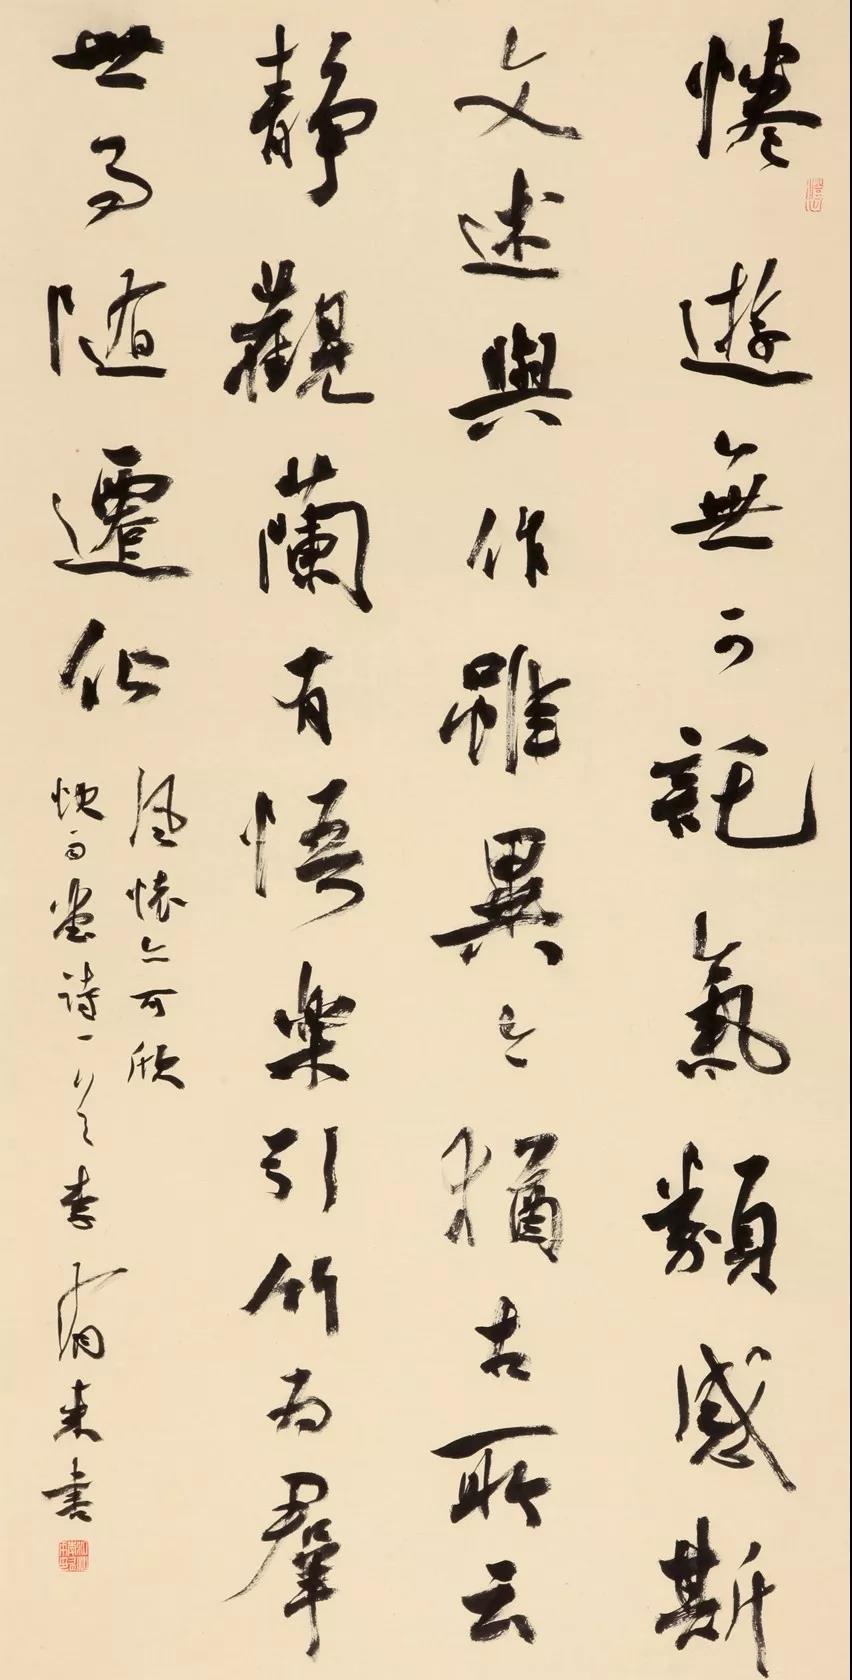 惓遊無可託氣類感斯
文述與作雖異今猶古所云
靜觀蘭有悟樂引竹為羣
世事随遷化
風懷亦可欣
快雨堂詩一首李有来書